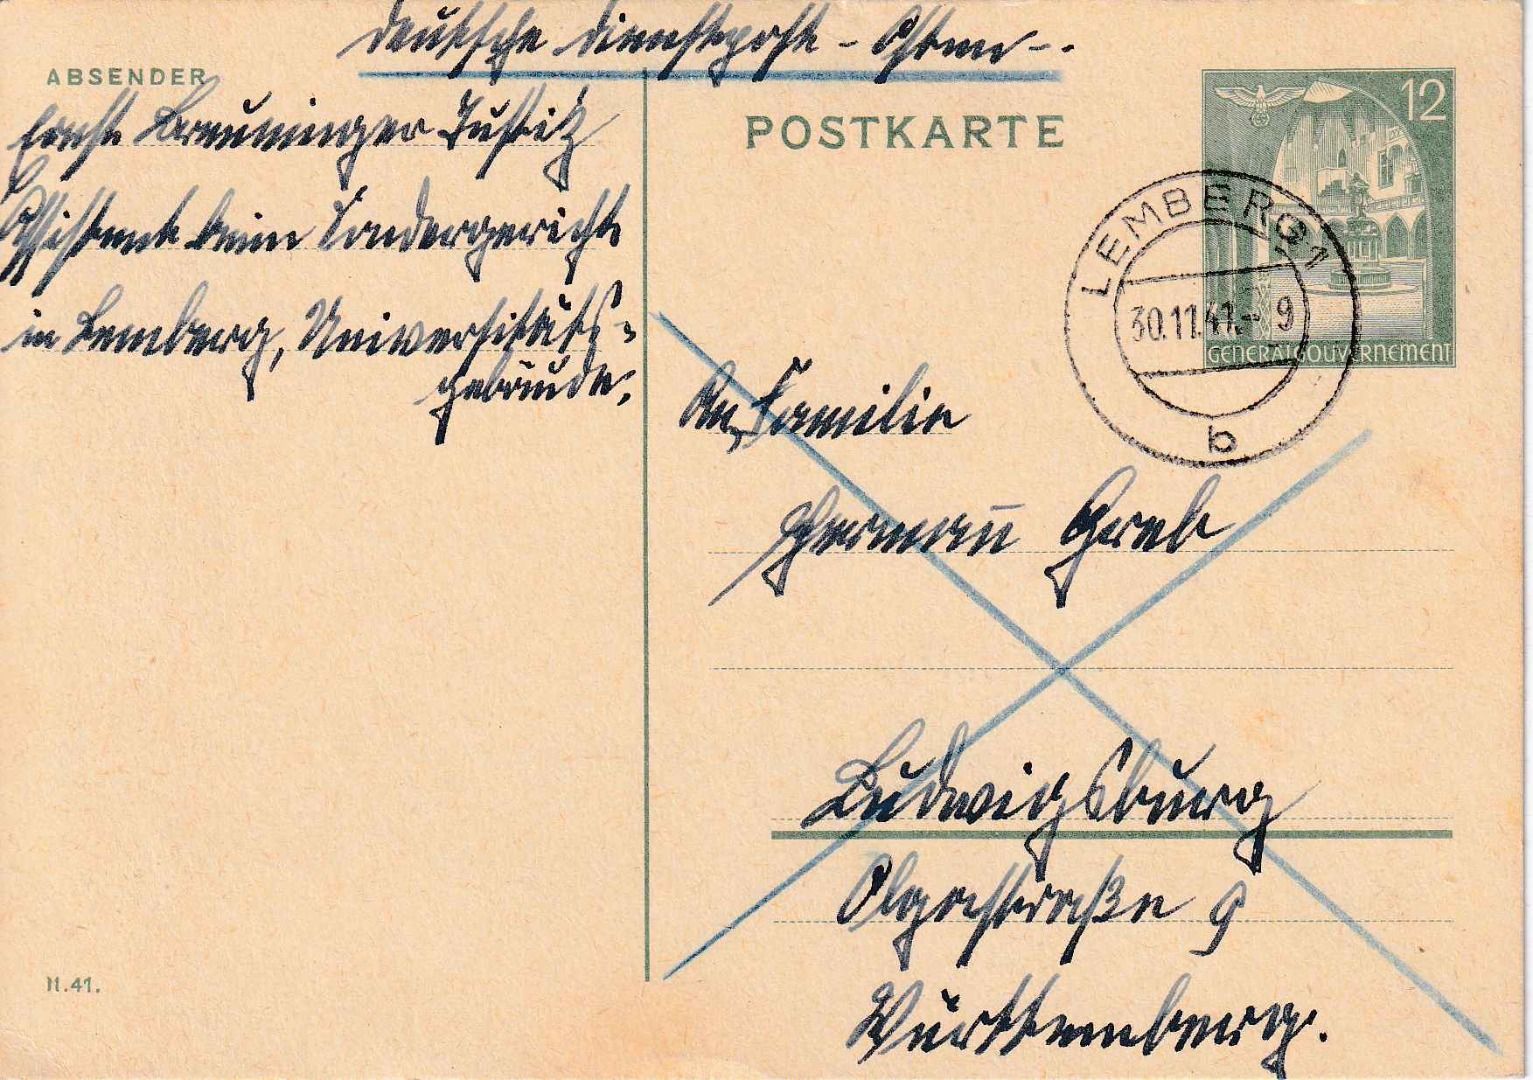 Deutsche Dienstpost - Osten -.
ABSENDER
Ernst Breuninger Justiz
Assistent beim Sondergericht
in Lemberg, Universitäts-
gebäude.
POSTKARTE
12
GENERALGOUVERNEMENT
LEMBERG 1
30.11.41.- 9
b
An Familie
Hermann Greb
Ludwigsburg
Olgastraße 9
Württemberg.
II.41.